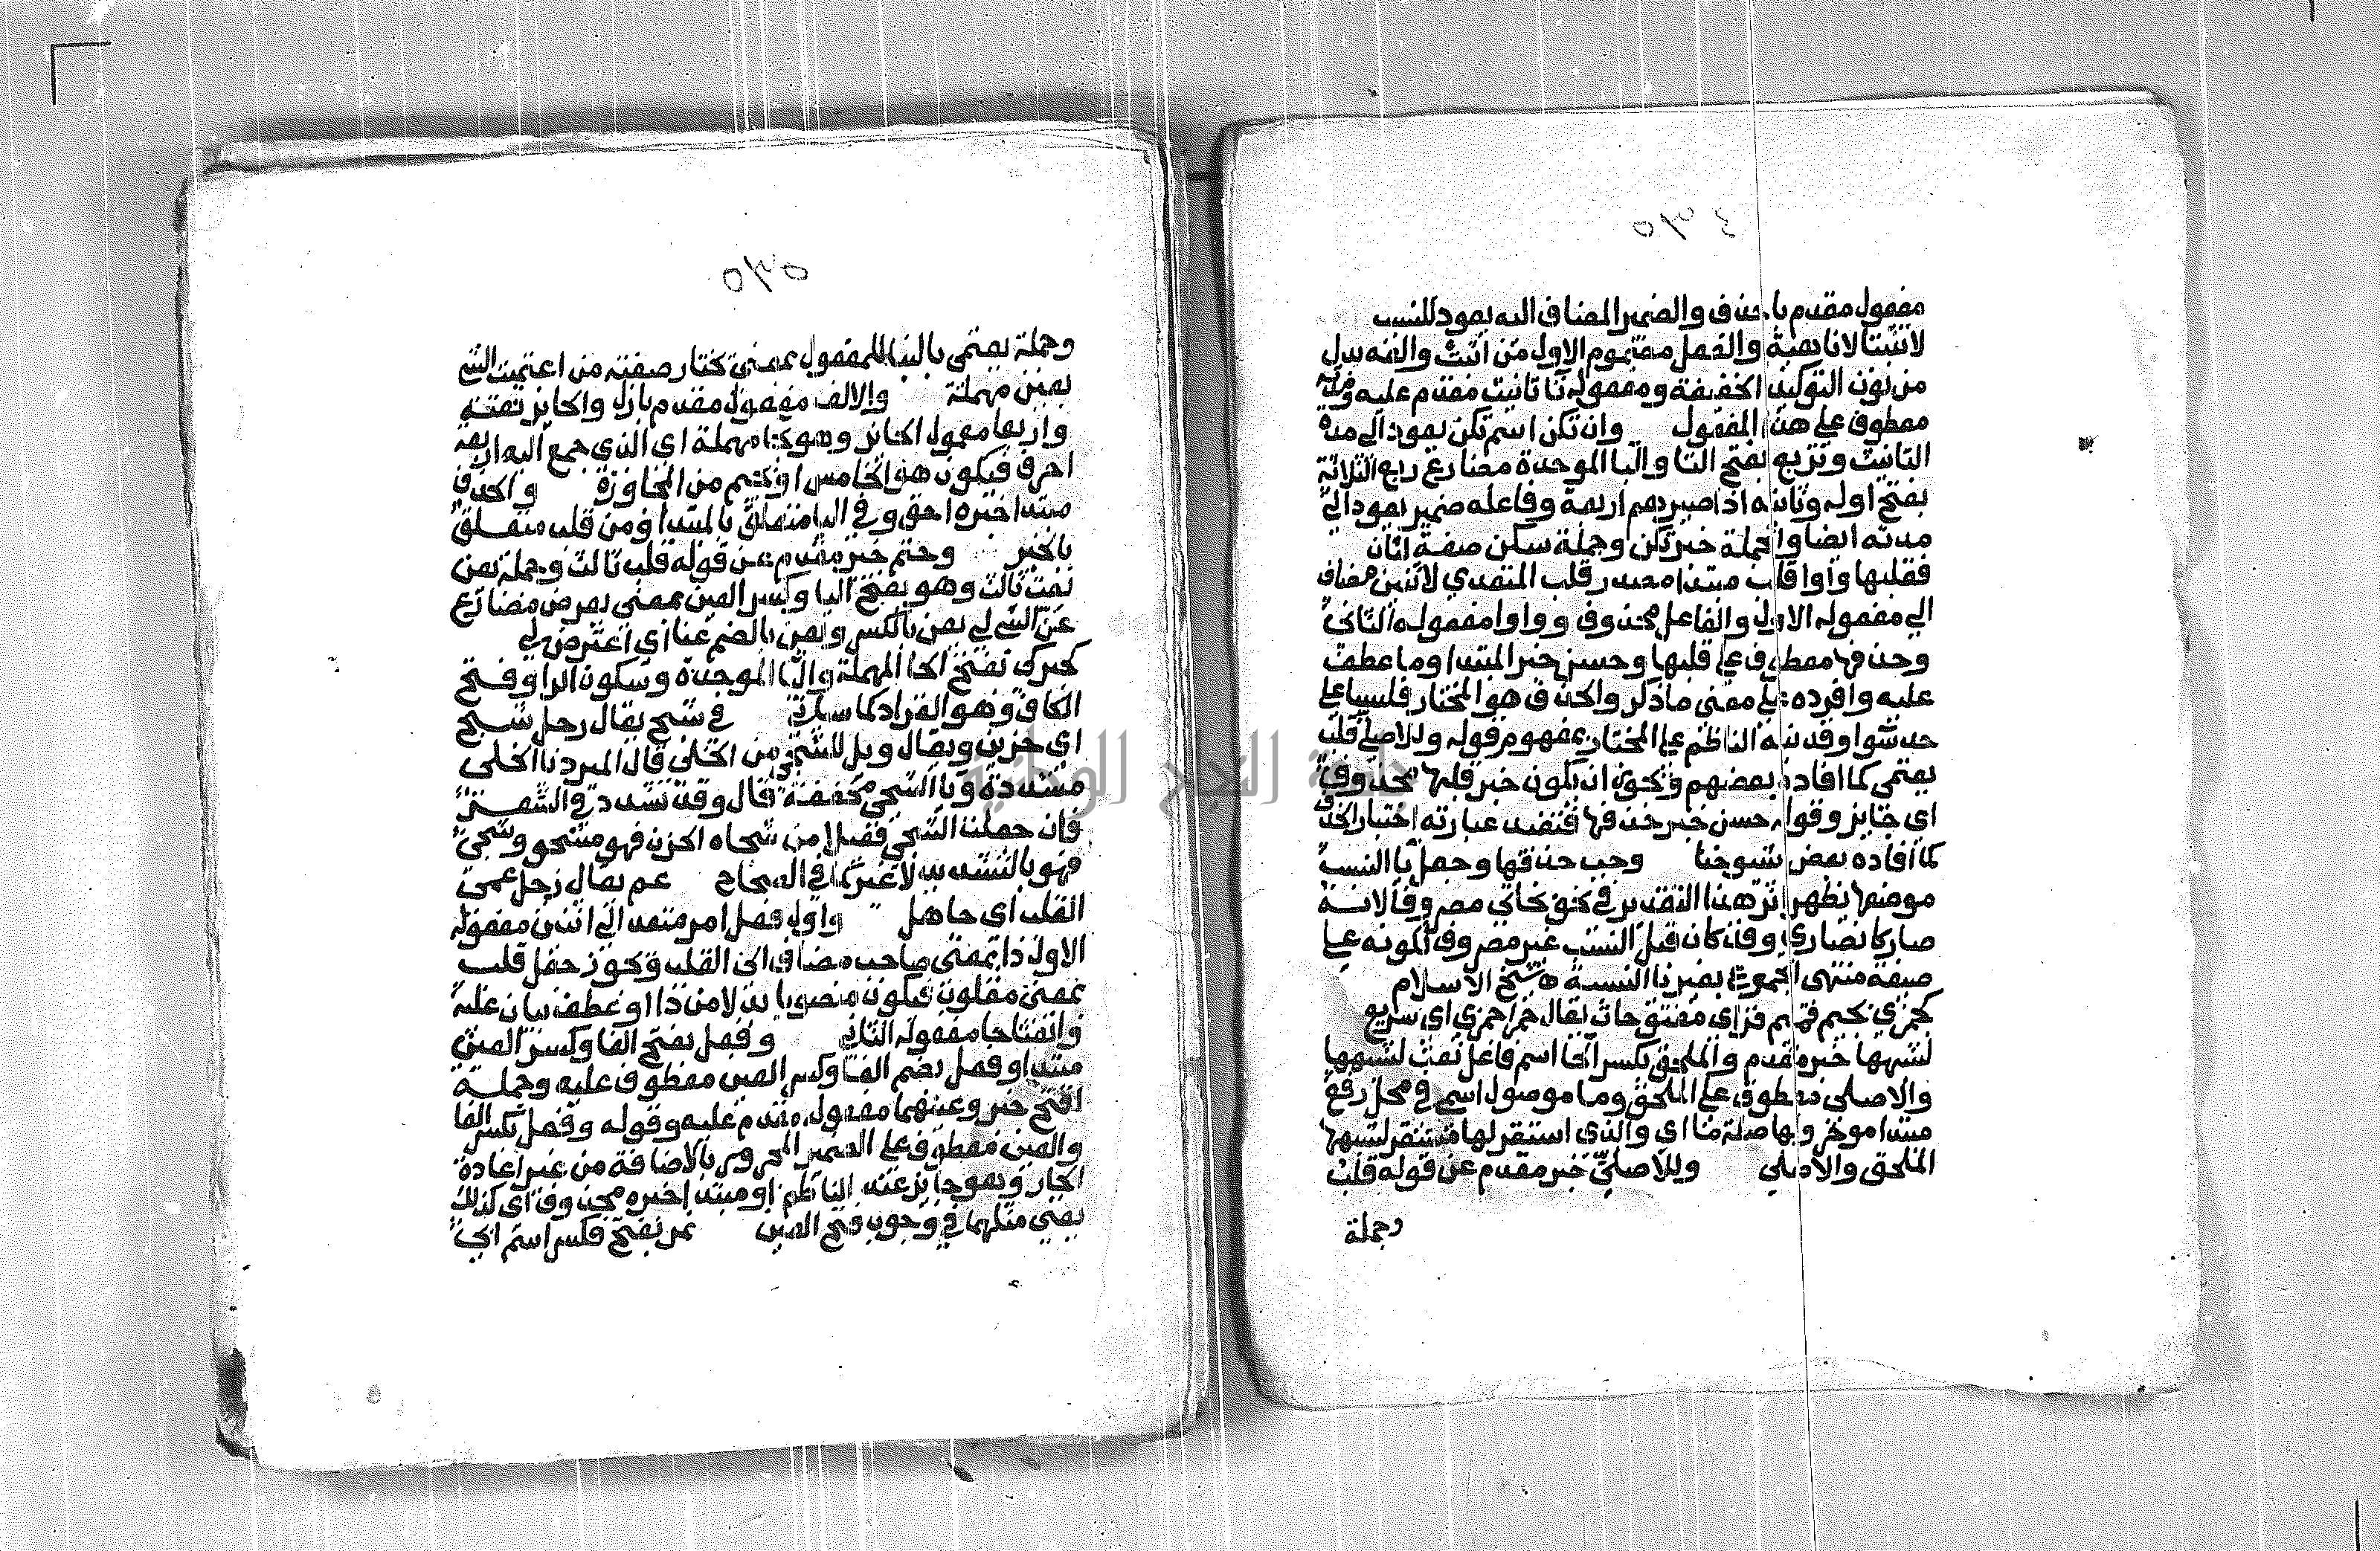 ٥٦٤
مفعول مقدم باحذف والضمير المضاف اليه يعود للنسب
لا تثبتا لا ناهية والفعل مجزوم الاول من اثبت والفه بدل
من نون التوكيد الخفيفة ومفعوله تا تانيث مقدم عليه ومدته
معطوف على هذا المفعول وان تكن اسم تكن يعود الى مدة
التانيث وتربع بفتح التا والبا الموحدة مضارع ربع الثلاثة
بفتح اوله وثانيه اذا صيرهم اربعة وفاعله ضمير يعود الى
مدته ايضا والجملة خبر تكن وجملة سكن صفة لثان
فقلبها واوا قلب مبتدا مصدر قلب المتعدي لاثنين مضاف
الى مفعوله الاول والفاعل محذوف وواوا مفعوله الثاني
وحذفها معطوف على قلبها وحسن خبر المبتدا وما عطف
عليه وافرده على معنى ما ذكر والحذف هو المختار فليسا على
حد سوا وقد نبه الناظم على المختار بمفهوم قوله وللاصلي قلب
يعتمى كما افاده بعضهم ويجوز ان يكون خبر قلبها محذوف
اي جايز وقوله حسن خبر حذفها فتفيد عبارته اختيار الحذف
كما افاده بعض شيوخنا وجب حذفها وجعل يا النسب
موضعها يظهر اثر هذا التقدير في نحو بخاتي مصروفا لانه
صار كانصاري وقد كان قبل النسب غير مصروف لكونه على
صيغة منتهى الجموع بغير يا النسبة ه شيخ الاسلام
كجمزي بجيم فميم فزاي مفتوحات يقال حمار جمزي اي سريع
لشبهها خبر مقدم والملحق بكسر الحا اسم فاعل نعت لشبهها
والاصلي معطوف على الملحق وما موصول اسمي في محل رفع
مبتدا موخر ولها صلة ما اي والذي استقر لها مستقر لشبهها
الملحق والاصلي وللاصلي خبر مقدم عن قوله قلب
وجملة
٥٦٥
وجملة يعتمى بالبنا للمفعول بمعنى يختار صفته من اعتميت الشي
بعين مهملة والالف مفعول مقدم بازل والحايز نعته
واربعا معمول الحايز وهو بحا مهملة اي الذي جمع اليه اربعة
احرف فيكون هو الخامس او بجيم من المجاوزة والحذف
مبتدا خبره احق وفي اليا متعلق بالمبتدا ومن قلب متعلق
بالخبر وحتم خبر مقدم عن قوله قلب ثالث وجملة يعن
نعت ثالث وهو بفتح اليا وكسر العين بمعنى يعرض مضارع
عن الشي لي يعن بالكسر ويعن بالضم عنا اي اعترض لي
كحبركى بفتح الحا المهملة والبا الموحدة وسكون الرا وفتح
الكاف وهو القراد كما سياتي في شج يقال رجل شج
اي حزين ويقال ويل للشجي من الخلي قال المبرد يا الخلي
مشددة ويا الشجي مخففة قال وقد تشدد في الشعر
فان جعلت الشجي فعيلا من شجاه الحزن فهو مشجو وشجي
فهو بالتشديد لا غير كما في الصحاح عم يقال رجل عمي
القلب اي جاهل واول فعل امر متعد الى اثنين مفعوله
الاول ذا بمعنى صاحب مضاف الى القلب ويجوز جعل قلب
بمعنى مقلوب فيكون منصوبا بدلا من ذا او عطف بيان عليه
وانفتاحا مفعوله الثاني وفعل بفتح الفا وكسر العين
مبتدا وفعل بضم الفا وكسر العين معطوف عليه وجملة
افتح خبر وعينهما مفعول مقدم عليه وقوله وفعل بكسر الفا
والعين معطوف على الضمير المجرور بالاضافة من غير اعادة
الجار وهو جايز عند الناظم او مبتدا خبره محذوف اي كذلك
يعني مثلهما في وجوب فتح العين نمر بفتح فكسر اسم الجب
جامعة النجاح الوطنية